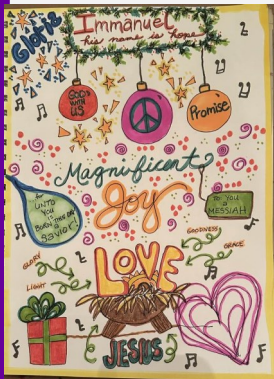 Gloria
Immanuel
his name is hope
GOD'S
WITH
US
Promise
Magnificent
Joy
for
UNTO
YOU IS
BORN THIS DAY
a
SAVIOR.
to you
a
MESSIAH
GOODNESS
GRACE
GLORY
LIGHT
LOVE
JESUS